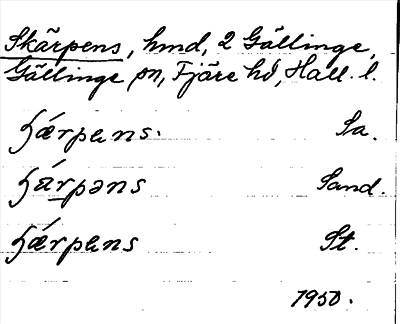 Skärpens, hmd, 2 Gällinge,
Gällinge sn, Fjäre hd, Hall. l.
ɧǽrpens. Sa.
ɧárpəns Sand.
ɧǽrpens St.
1950.